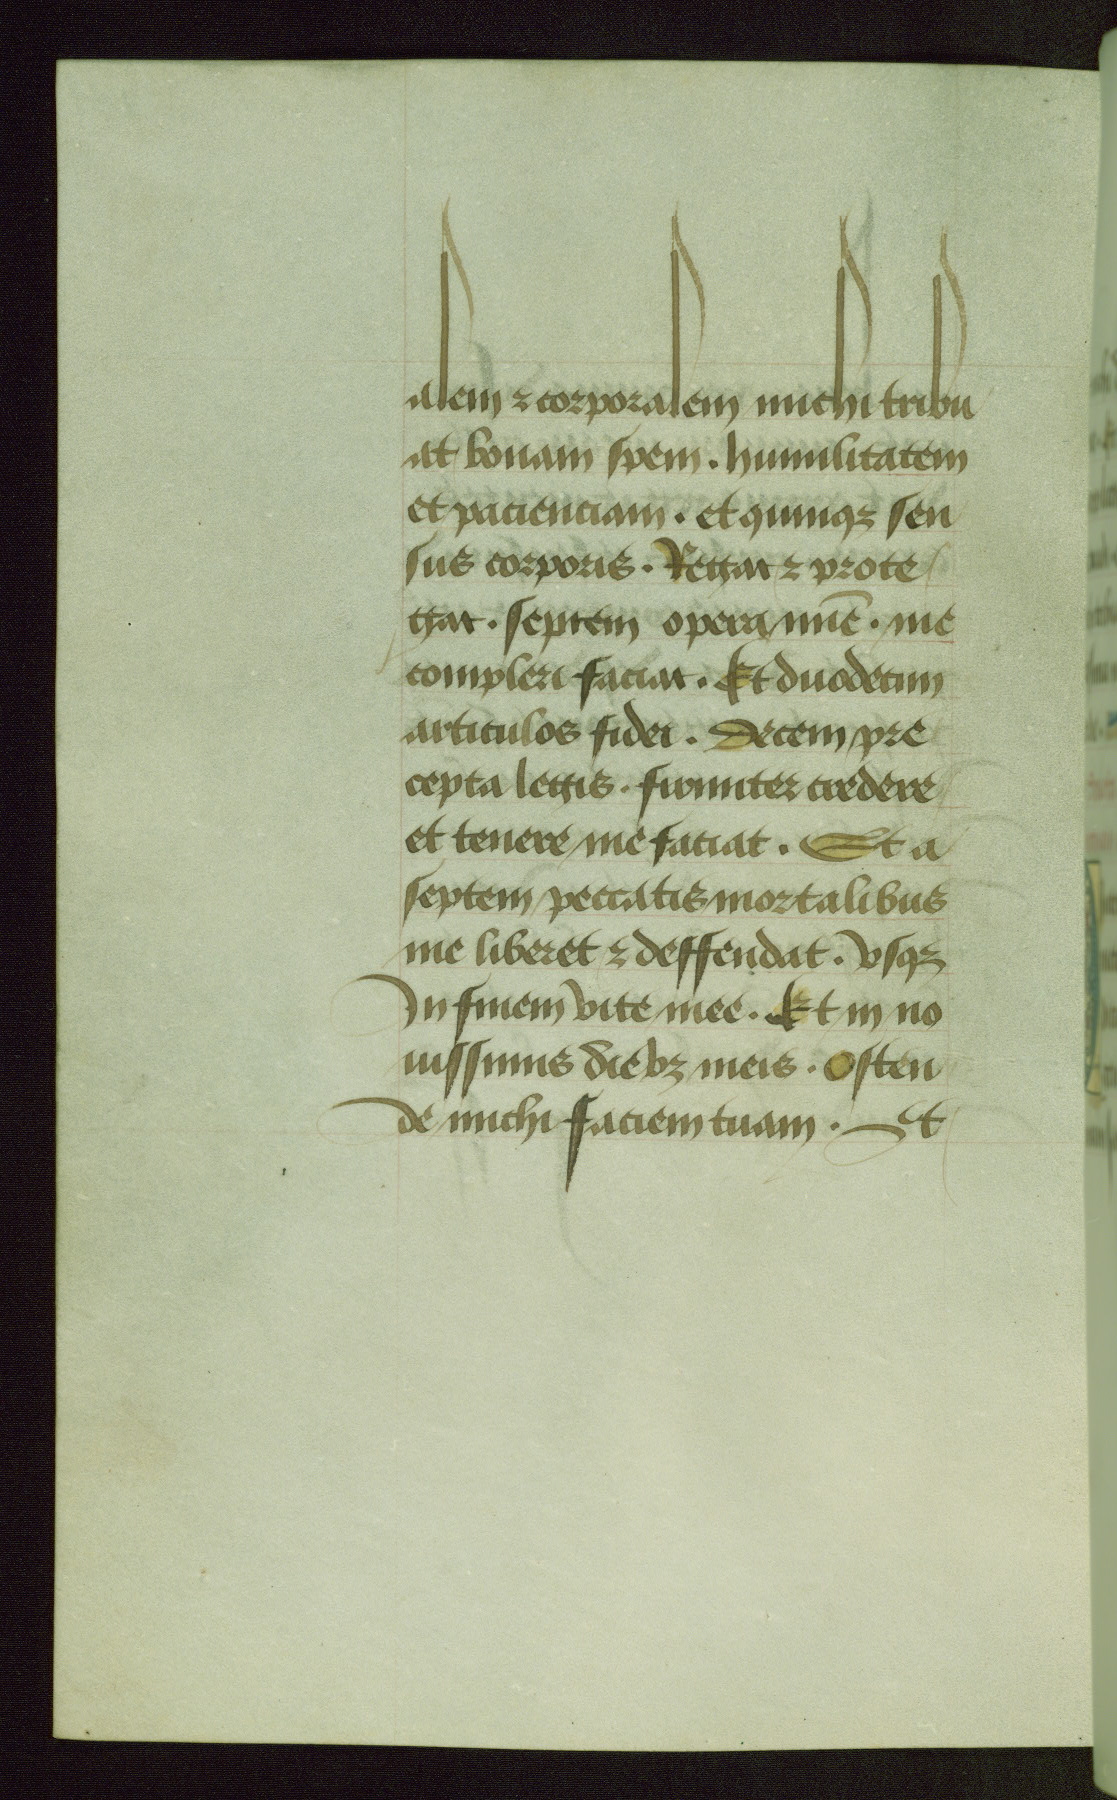 alem ⁊ corporalem michi tribu
at bonam spem . humilitatem
et pacienciam . et quinqꝫ sen
sus corporis . Regat ⁊ prote
gat . septem opera mīe . me
complere faciat . Et duodecim
articulos fidei . Decem pre
cepta legis . firmiter credere
et tenere me faciat . Et a
septem peccatis mortalibus
me liberet ⁊ deffendat . vsqꝫ
In finem vite mee . Et in no
uissimis diebꝫ meis . Osten
de michi faciem tuam . Et